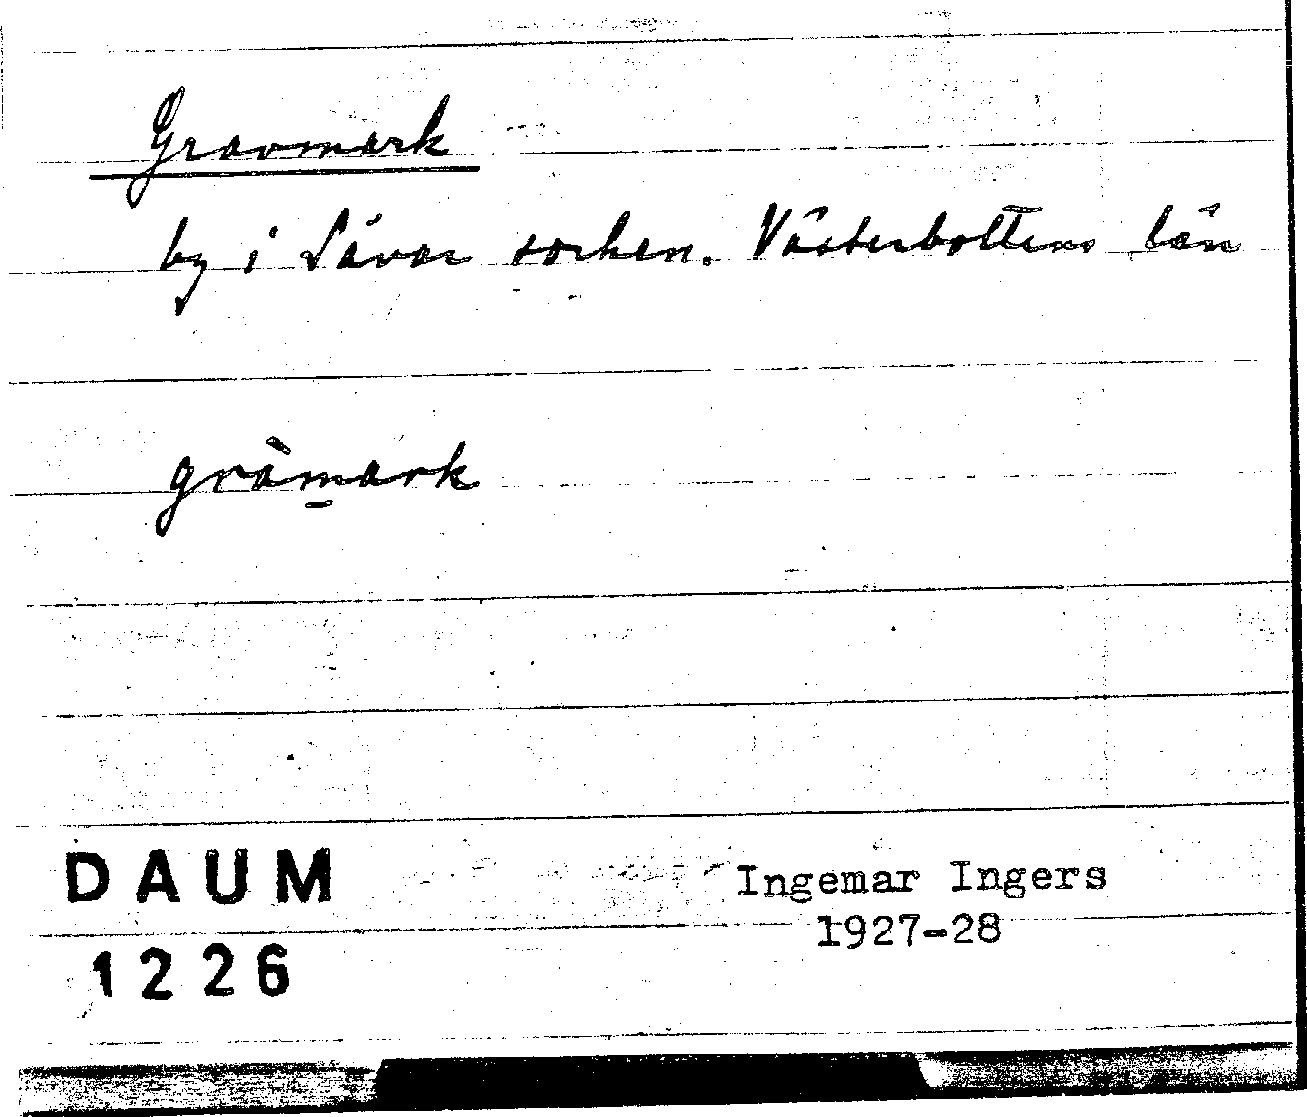 Gravmark
by i Sävar socken. Västerbottens län
gràm̱ark
DAUM
1226
Ingemar Ingers
1927-28